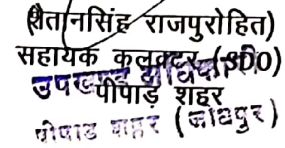 (शैतानसिंह राजपुरोहित)
सहायक कलक्टर (SDO)
उपखण्ड अधिकारी
पीपाड़ शहर
पीपाड शहर (जोधपुर)